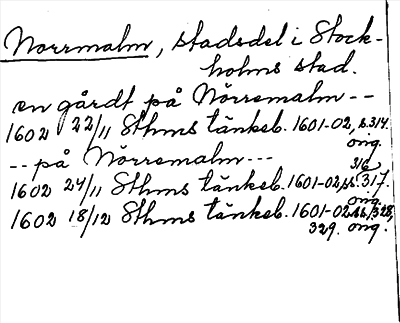 Norrmalm, stadsdel i Stock-
holms stad.
en gårdt på Nörremalm --
1602 22/11 Sthms tänkeb. 1601-02, s. 314.
orig.
-- på Nörremalm ---
316
1602 24/11 Sthms tänkeb. 1601-02, ss. 317.
orig.
1602 18/12 Sthms tänkeb. 1601-02 ss. 328,
329. orig.